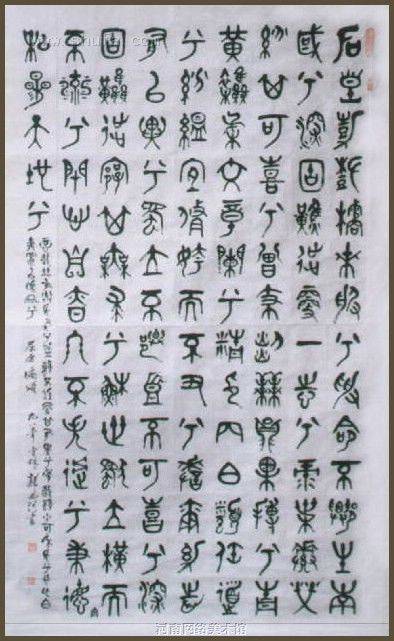 后皇嘉樹橘來服兮受命不遷生南
國兮深固難徙更一志兮綠葉素榮
紛其可喜兮曾枝剡棘圓果摶兮青
黃雜糅文章爛兮精色內白類任道
兮紛縕宜修姱而不醜兮嗟爾幼志
有以異兮獨立不遷豈不可喜兮深
固難徙廓其無求兮蘇世獨立橫而
不流兮閉心自慎終不失過兮秉德無
私參天地兮
屈原橘頌
河南网络美术馆